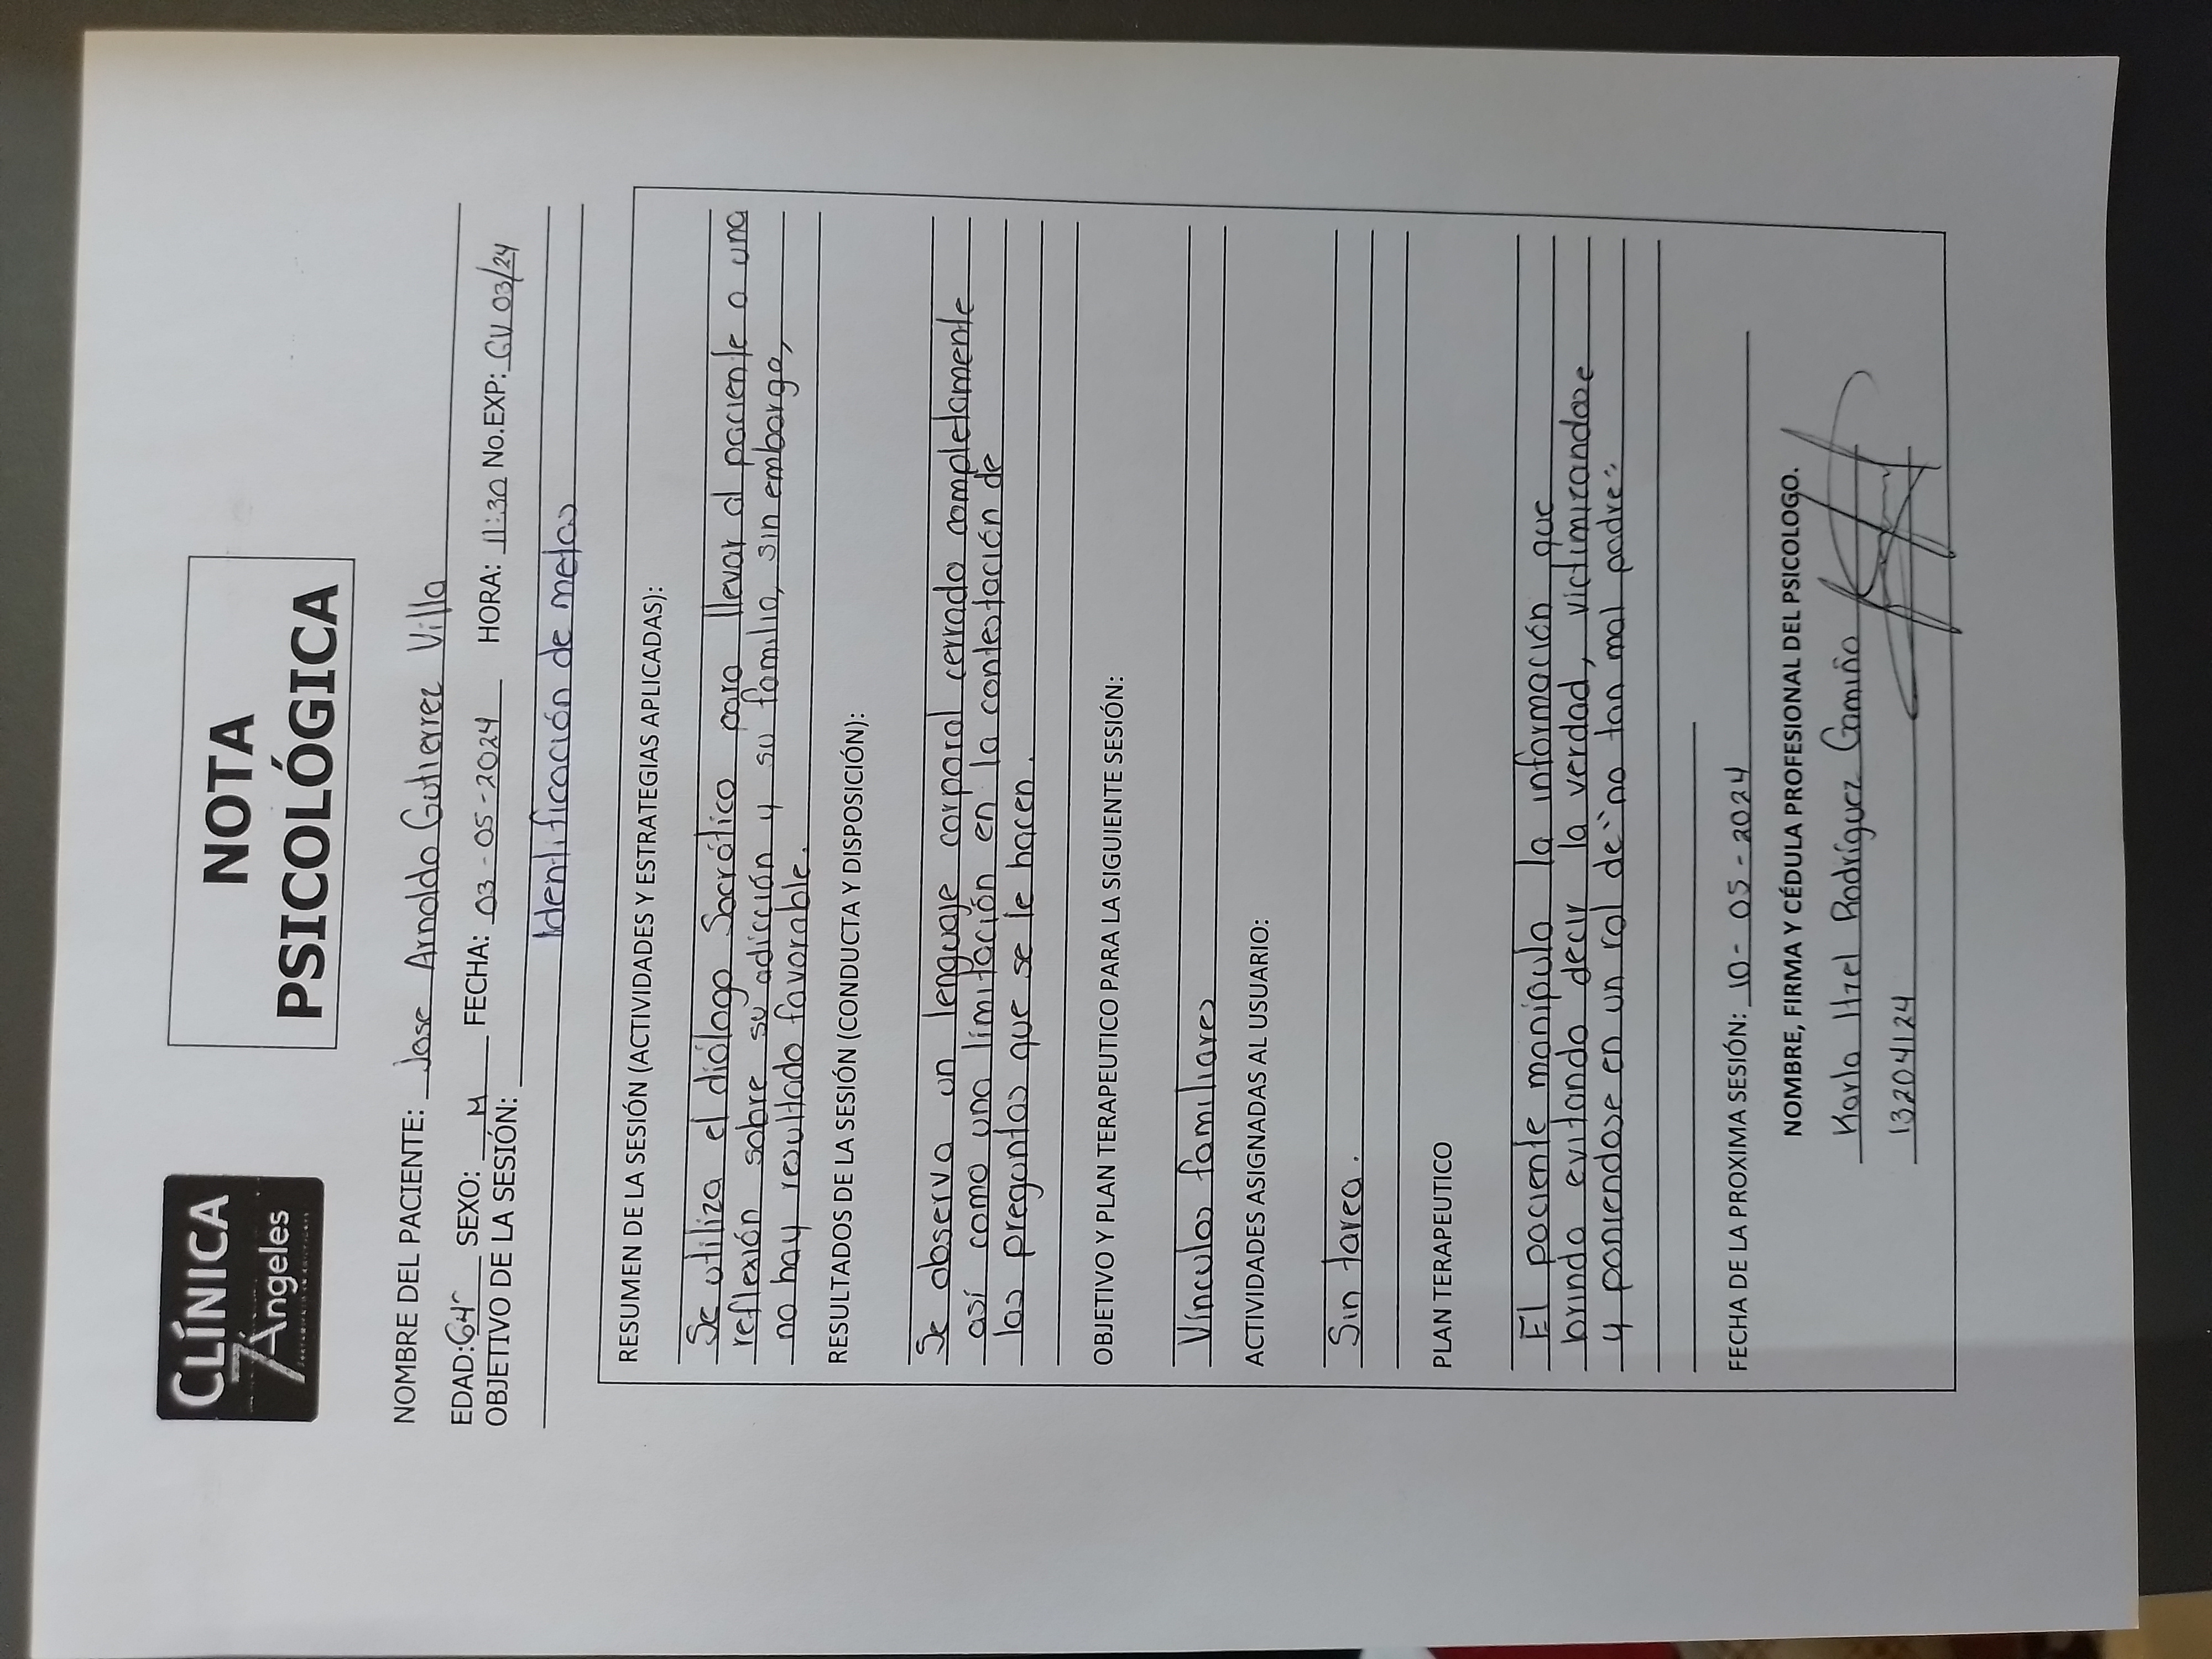 CLÍNICA
7 Ángeles
NOTA
PSICOLÓGICA
NOMBRE DEL PACIENTE: Jose Arnoldo Gutierrez Villa
EDAD: 64 SEXO: M FECHA: 03-05-2024 HORA: 11:30 No.EXP: GV 03/24
OBJETIVO DE LA SESIÓN:
Identificación de metas
RESUMEN DE LA SESIÓN (ACTIVIDADES Y ESTRATEGIAS APLICADAS):
Se utiliza el diálogo Socrático para llevar al paciente a una
reflexión sobre su adicción y su familia, sin embargo,
no hay resultado favorable.
RESULTADOS DE LA SESIÓN (CONDUCTA Y DISPOSICIÓN):
Se observa un lenguaje corporal cerrado completamente
así como una limitación en la contestación de
las preguntas que se le hacen.
OBJETIVO Y PLAN TERAPEUTICO PARA LA SIGUIENTE SESIÓN:
Vínculos familiares
ACTIVIDADES ASIGNADAS AL USUARIO:
Sin tarea.
PLAN TERAPEUTICO
El paciente manipula la información que
brinda evitando decir la verdad, victimizandose
y poniendose en un rol de "no tan mal padre"
FECHA DE LA PROXIMA SESIÓN: 10-05-2024
NOMBRE, FIRMA Y CÉDULA PROFESIONAL DEL PSICOLOGO.
Karla Itzel Rodríguez Gamiño
13204124